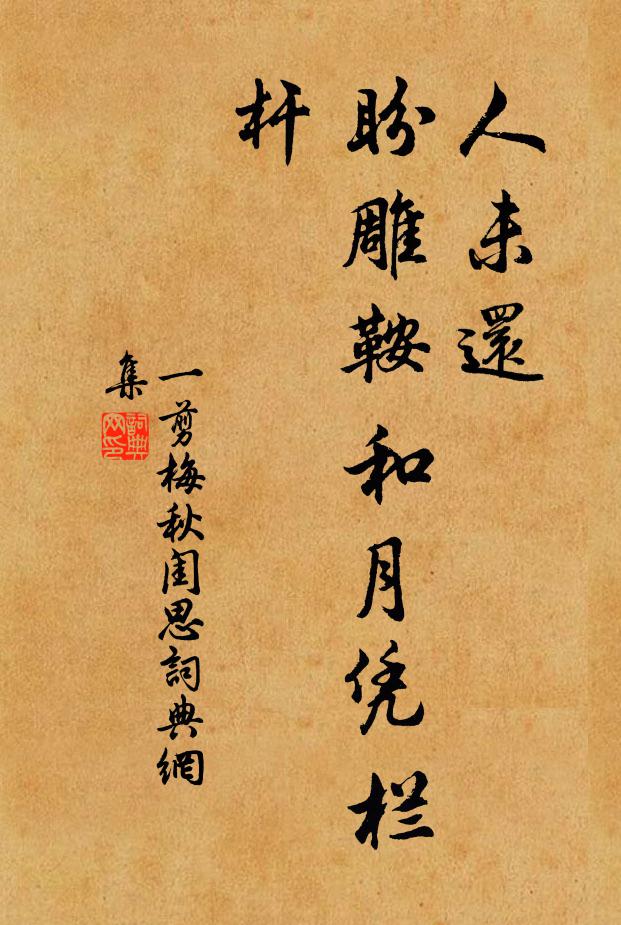 人未還
盼雕鞍和月凭栏
杆
一剪梅秋闺思詞典網
集
詞典
网印